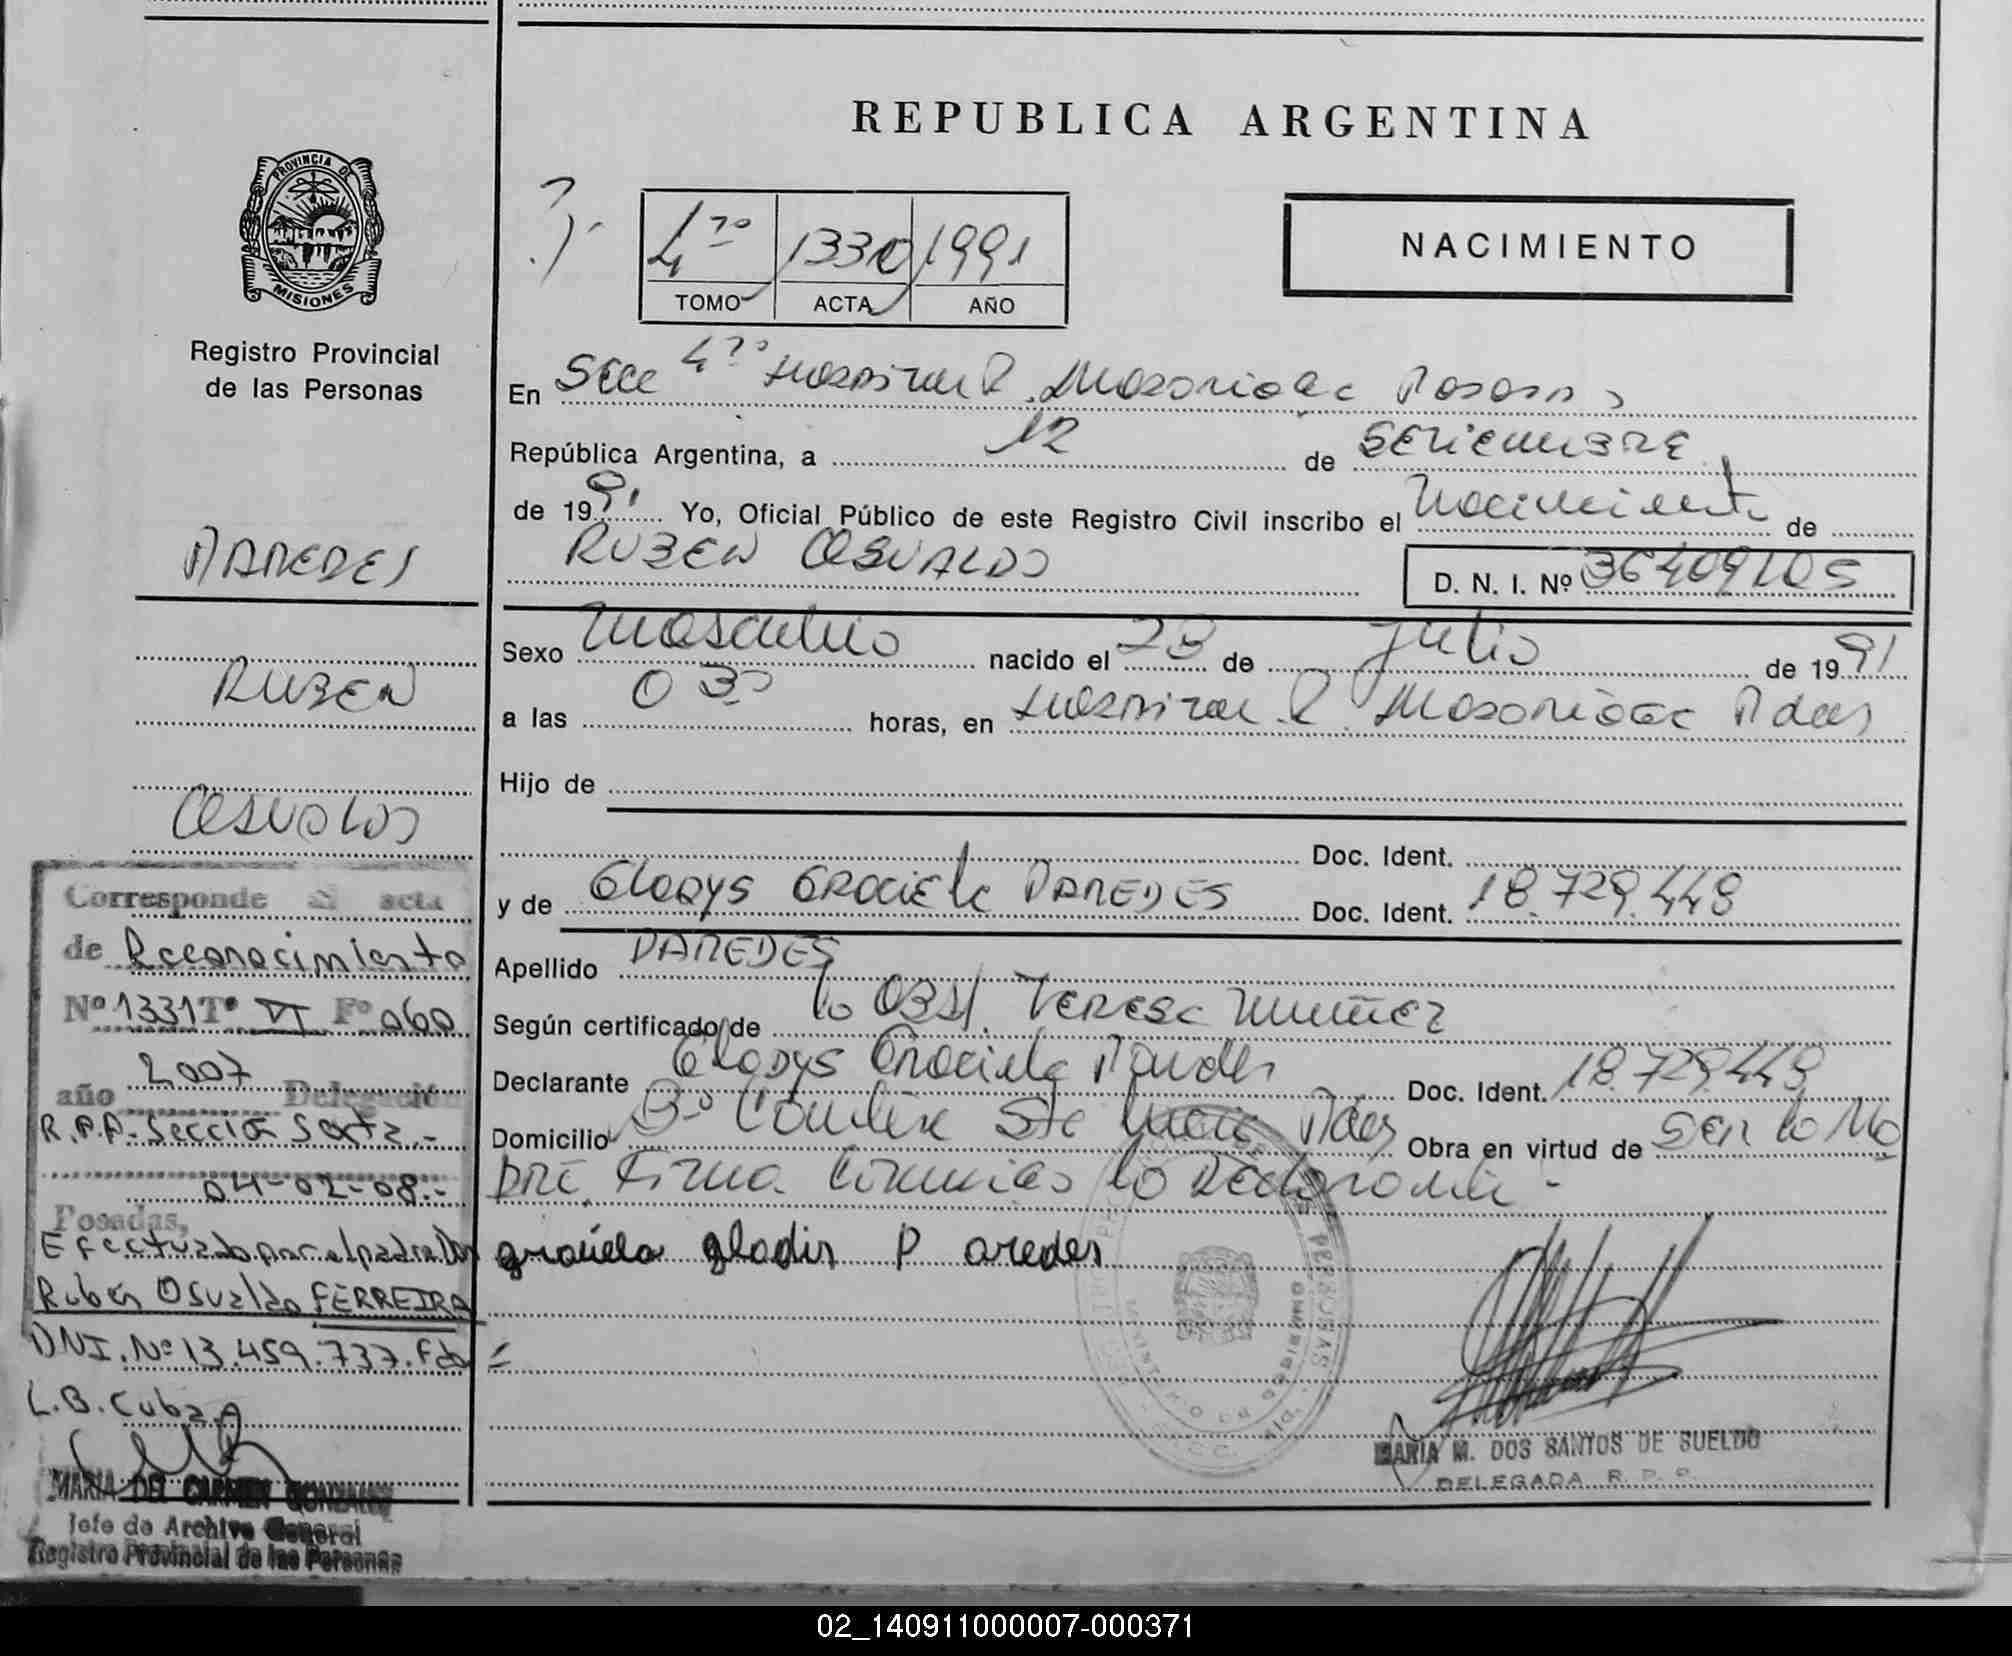 REPUBLICA ARGENTINA
PROVINCIA DE MISIONES
Registro Provincial
de las Personas
4to 1330 1991
TOMO ACTA AÑO
NACIMIENTO
En Secc 4ta Hospital R. Madariaga Posadas
República Argentina, a 12 de SETIEMBRE
de 1991 Yo, Oficial Público de este Registro Civil inscribo el Nacimiento de
RUBEN OSVALDO D. N. I. Nº 36409105
Sexo Masculino nacido el 23 de Julio de 1991
a las 03 horas, en Hospital R. Madariaga Pdas
Hijo de
Doc. Ident.
y de Gladys Graciela PAREDES Doc. Ident. 18.729.448
Apellido PAREDES
Según certificado de la Obst. Teresa
Declarante Gladys Graciela Paredes Doc. Ident. 18.729.448
Domicilio Bo Santa Pdas Obra en virtud de Ser la Ma
dre Firma la Declarante -
graciela gladis P aredes
MARIA M. DOS SANTOS DE SUELDO
DELEGADA R. P. P.
PAREDES
RUBEN
OSVALDO
Corresponde al acta
de Reconocimiento
Nº 1331 Tº VI Fº 060
año 2007 Delegación
R.P.P. Sección Sexta.-
Posadas, 04-02-08.-
Efectuado por el padre Don
Rubén Osvaldo FERREIRA
DNI. Nº 13.459.737. Fdo
L.B. Cubas
MARIA DEL CARMEN GONZALEZ
Jefe de Archivo General
Registro Provincial de las Personas
02_140911000007-000371